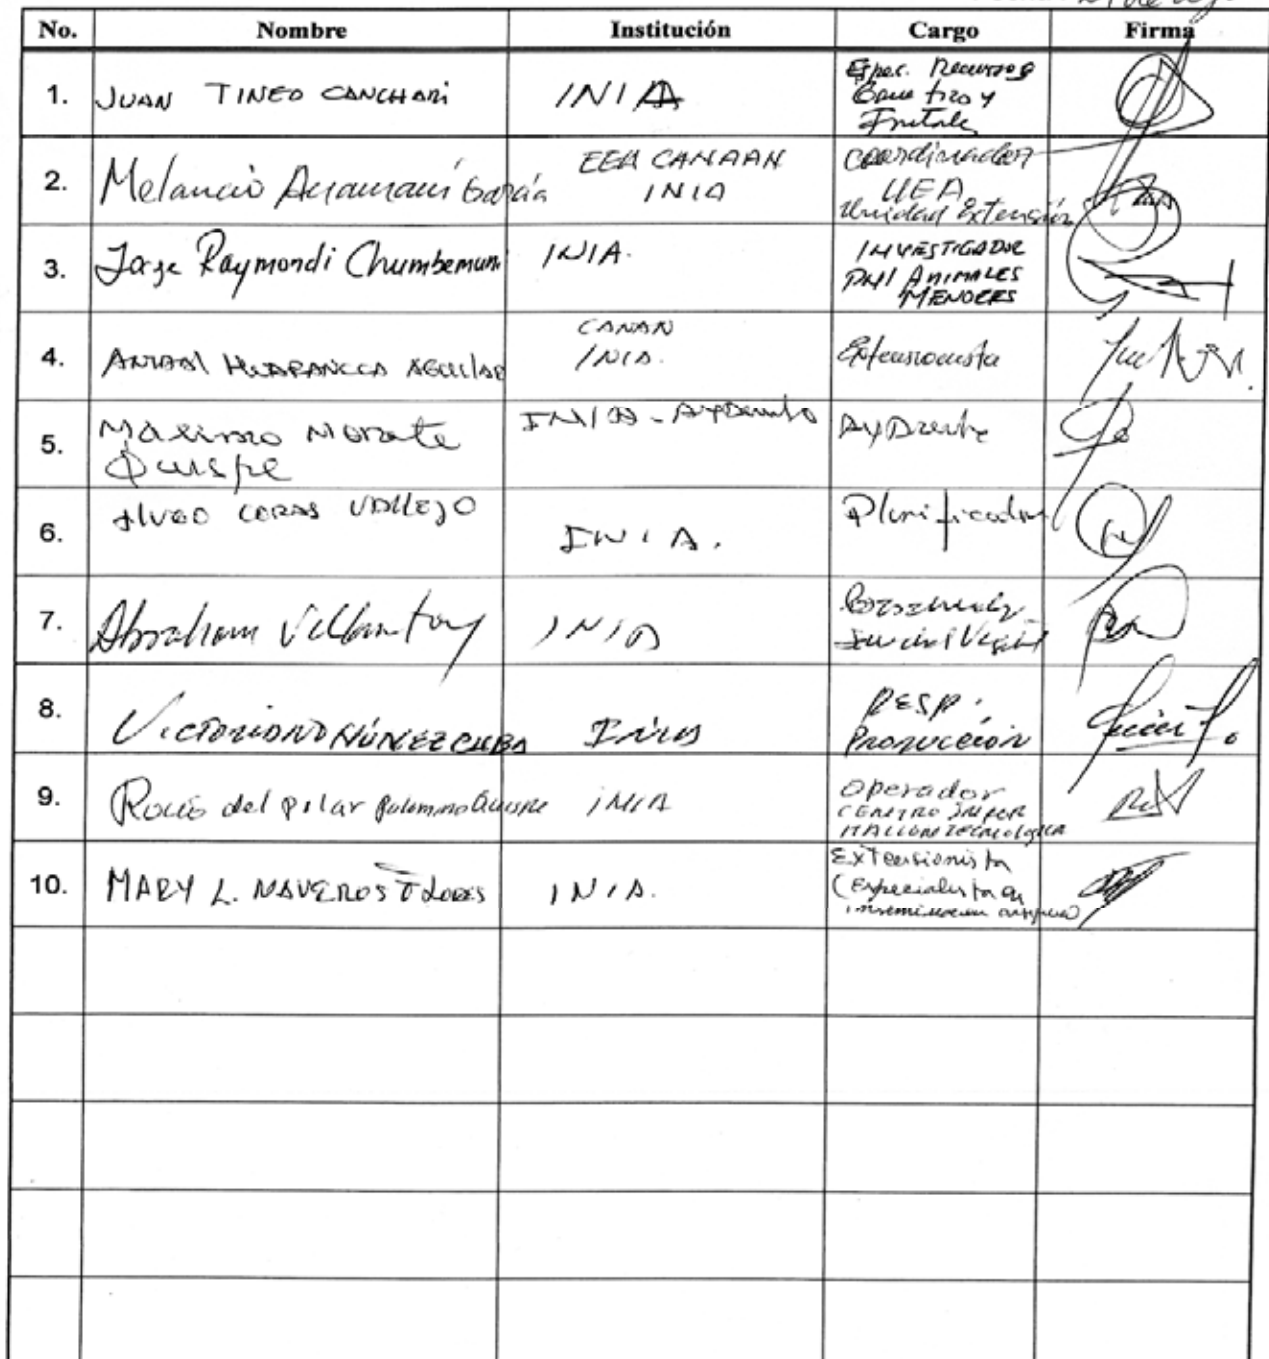 No. Nombre Institución Cargo Firma
1. JUAN TINEO CANCHARI INIA Espec. Recursos
Genetico y
Frutales
2. Melancio García EEA CANAAN coordinador
INIA UEA
Unidad Extensión
3. Jorge Raymondi Chumbemuni INIA. INVESTIGADOR
PNI ANIMALES
MENORES
4. AGUILAR CANAN Extensionista
INIA.
5. Maximo Morote INIA - Ayacucho
Quispe
6. HUGO CERAS VALLEJO INIA. Planificador
7. Abraham Villantoy INIA
8. VICTORIANO NÚÑEZ CUBA INIA RESP.
PRODUCCIÓN
9. Rocio del pilar Palomino Quispe iNIA operador
CENTRO
10. MARY L. NAVEROS FLORES INIA. Extensionista
(Especialista en